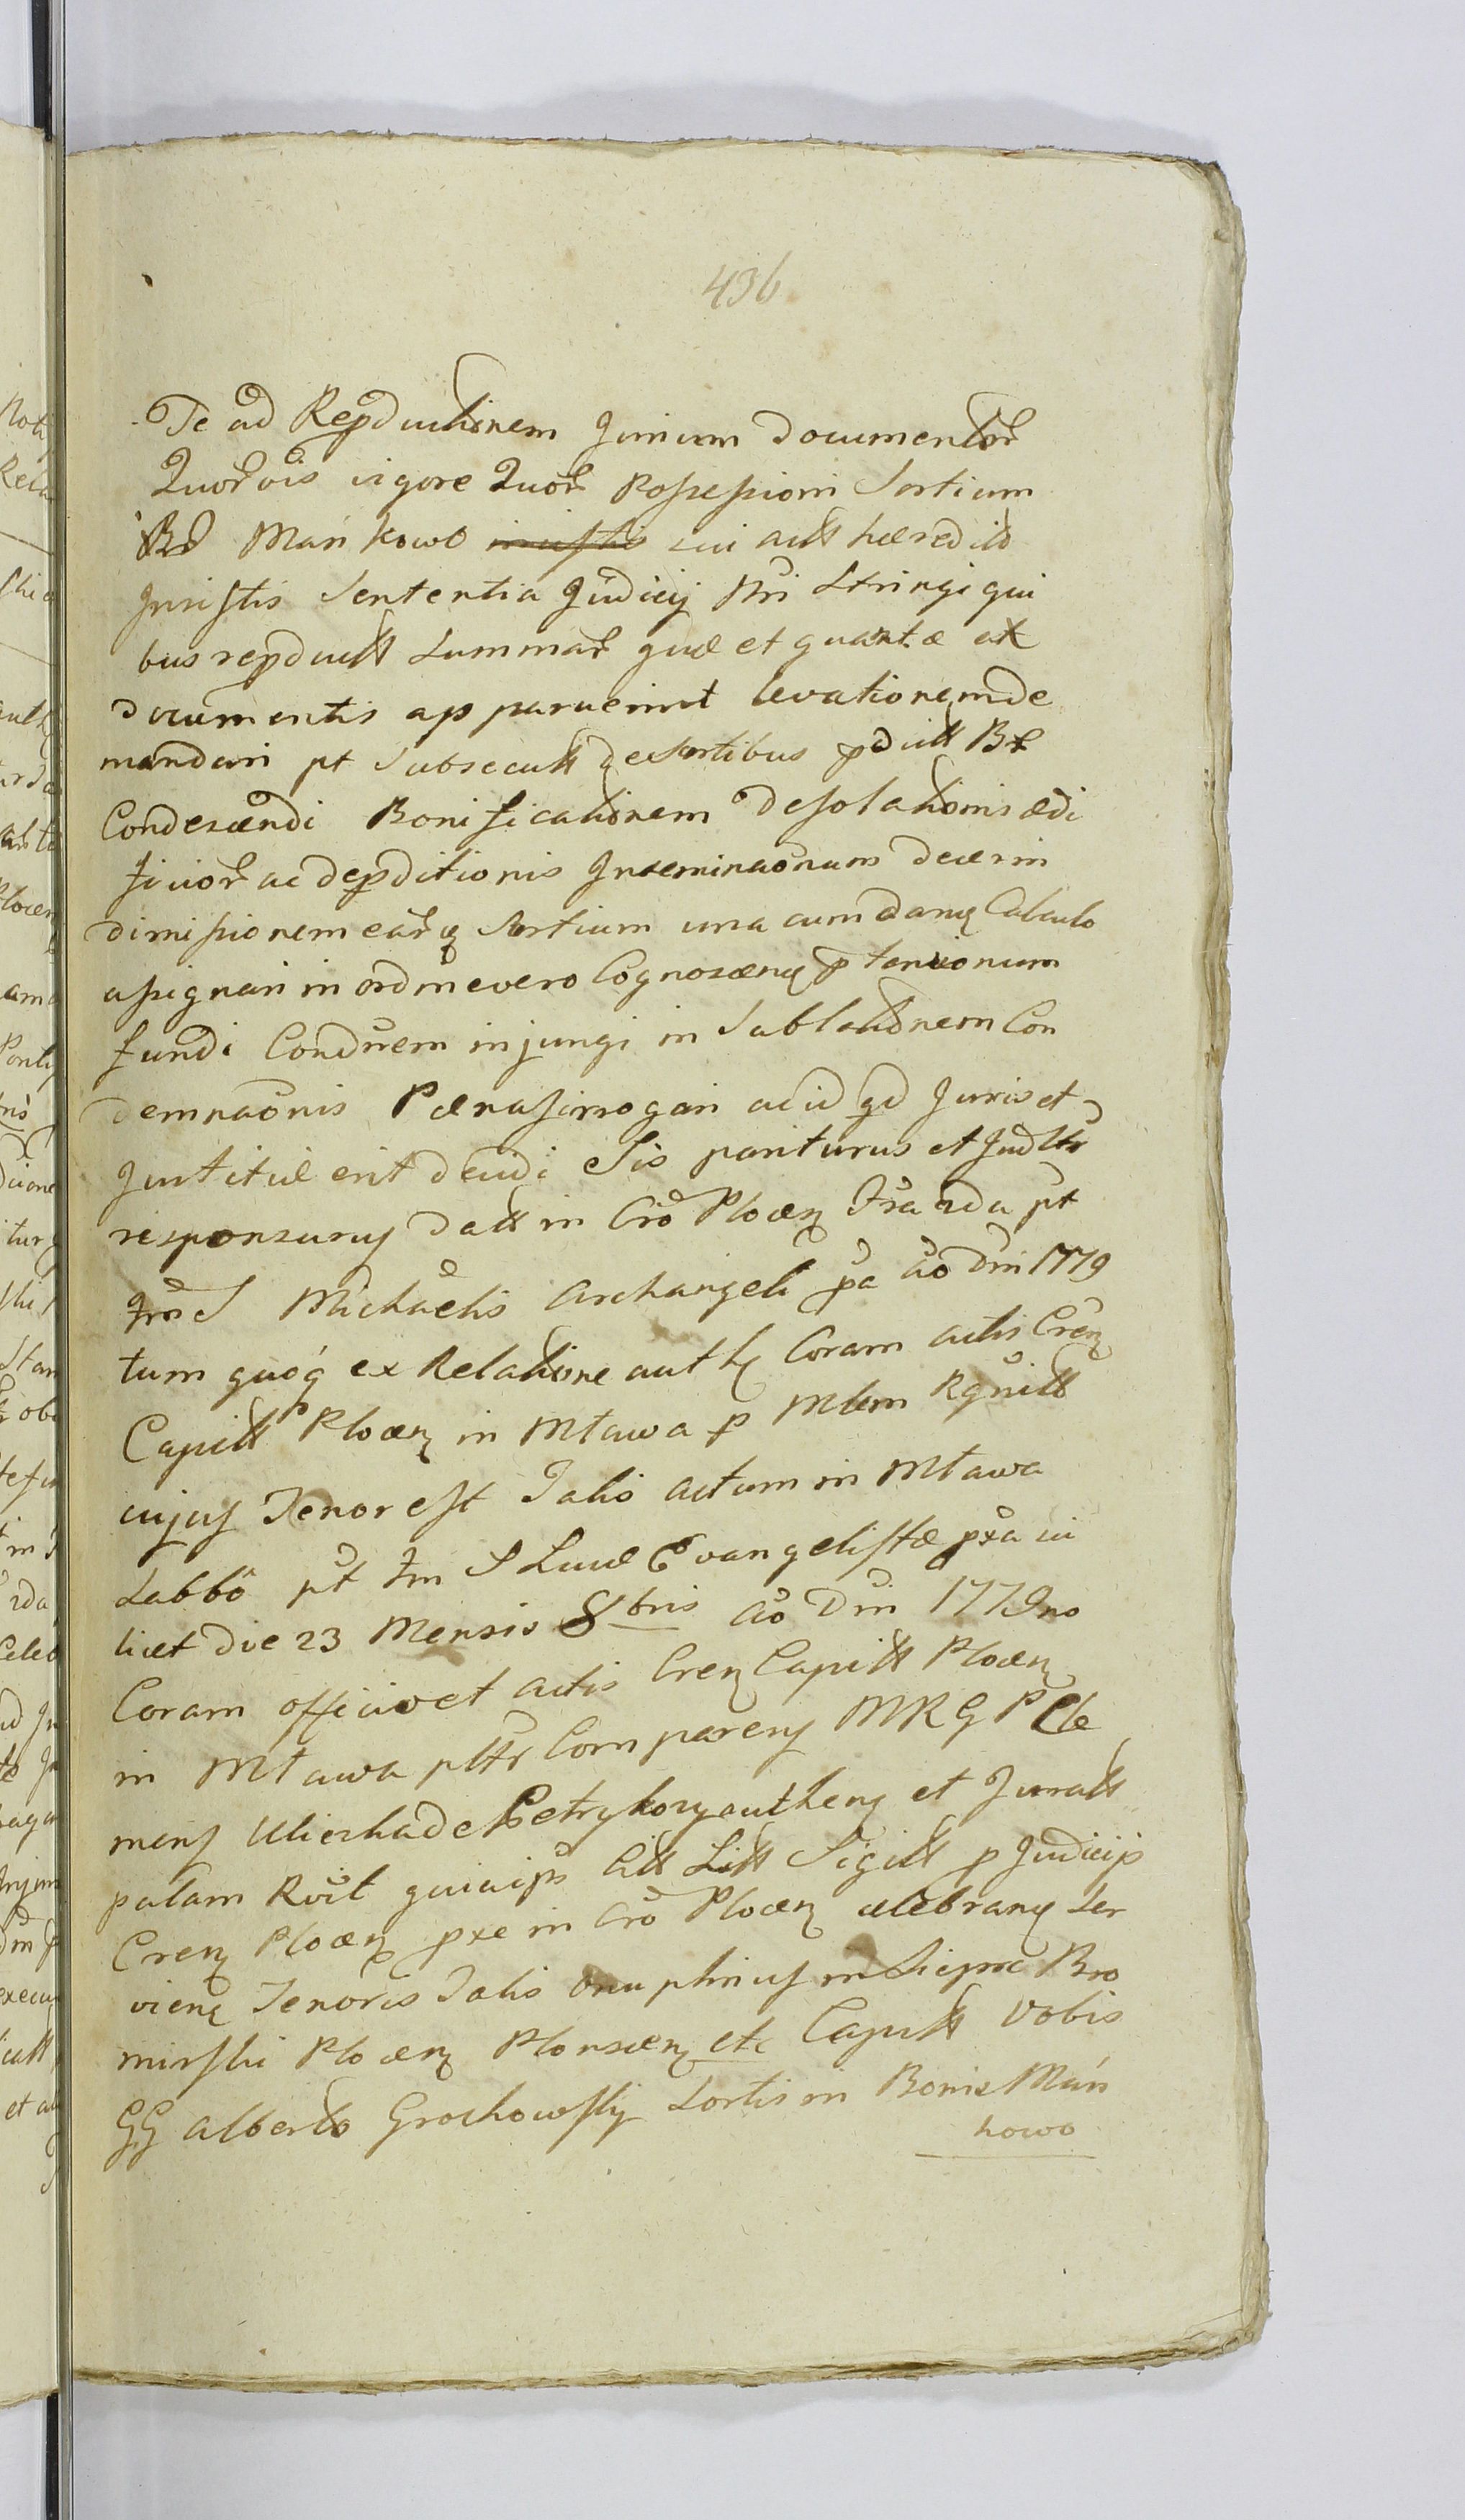 436
Te ad Repductionem Jurium Documentor
Quorvis vigore Quor Possessioni Sortium
Bd Mańkowo sui actt hæredito
Jnsistis Sententia Judicij Nri Stringi qui
bus repductt Summar quæ et quantæ ex
documentis apparuerint levationem de
mandari pt Subsecutt de Sortibus pdictt Bs
Condescendi Bonificationem Desolationis ædi
ficior ac depditionis Jnseminaonum decerni
dimissionem earq Sortium una cum danę Calculo
assignari in ordine vero Cognoscenę ptensionum
fundi Condnem injungi in Sublationem Con
demnaonis Pænas irrogari ad id qd Juris et
Justitiæ erit decidi Sis pariturus et Judltr
responsurus Datt in Cro Plocen fra 2da pt
fm S Michaelis Archangeli pa Ao Dni 1779
tum quoq ex Relatione auth Coram actis Cren
Capitt Plocen in Mława p Mlem Rgnitt
cujus Tenor est Talis actum in Mława
Sabbo pt fm S Lucæ Evangelistæ pxa vi
licet die 23 Mensis 8bris Ao Dni 1779no
Coram officio et actis Cren Capitt Plocen
in Mława pltr Comparens MRGP Cle
mens Wierhade Petrykozy authens et Juratt
palam Rvit quia ips Citt Litt Sigitt p Judicijs
Cren Plocen pxe in Cro Plocen celebranę Ser
vienę Tenoris Talis Onuphrius in Sieprc Bro
mirski Plocen Plonscen etc Capitt Vobis
GG Alberto Grochowskij Sortis in Bonis Mań
kowo